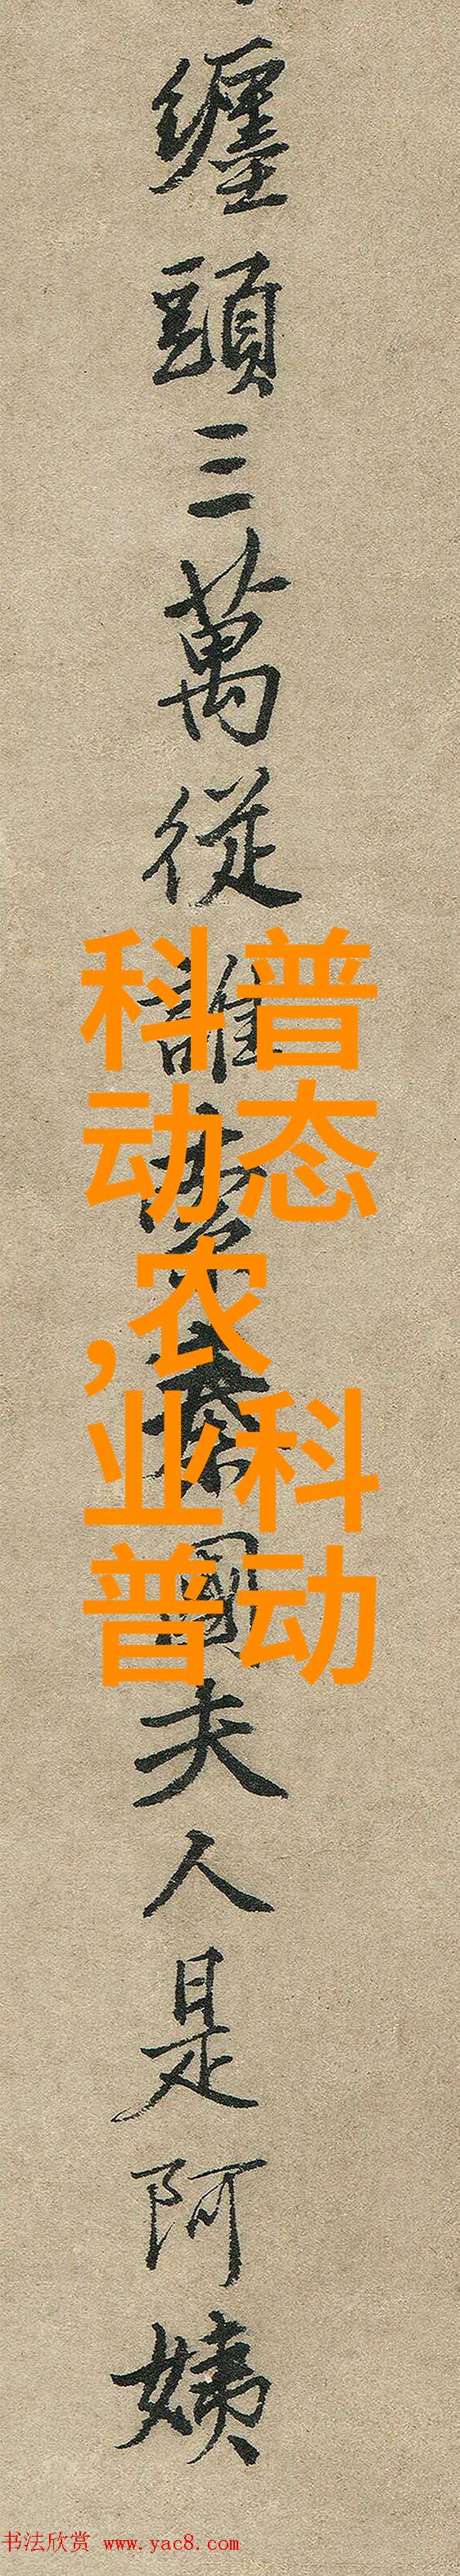 纏頭三萬從誰索秦國夫人是阿姨
科普
动态
,农
业科
普动
书法欣赏 www.yac8.com